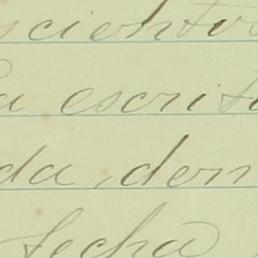 scientos
a escrit
da, den
fecha